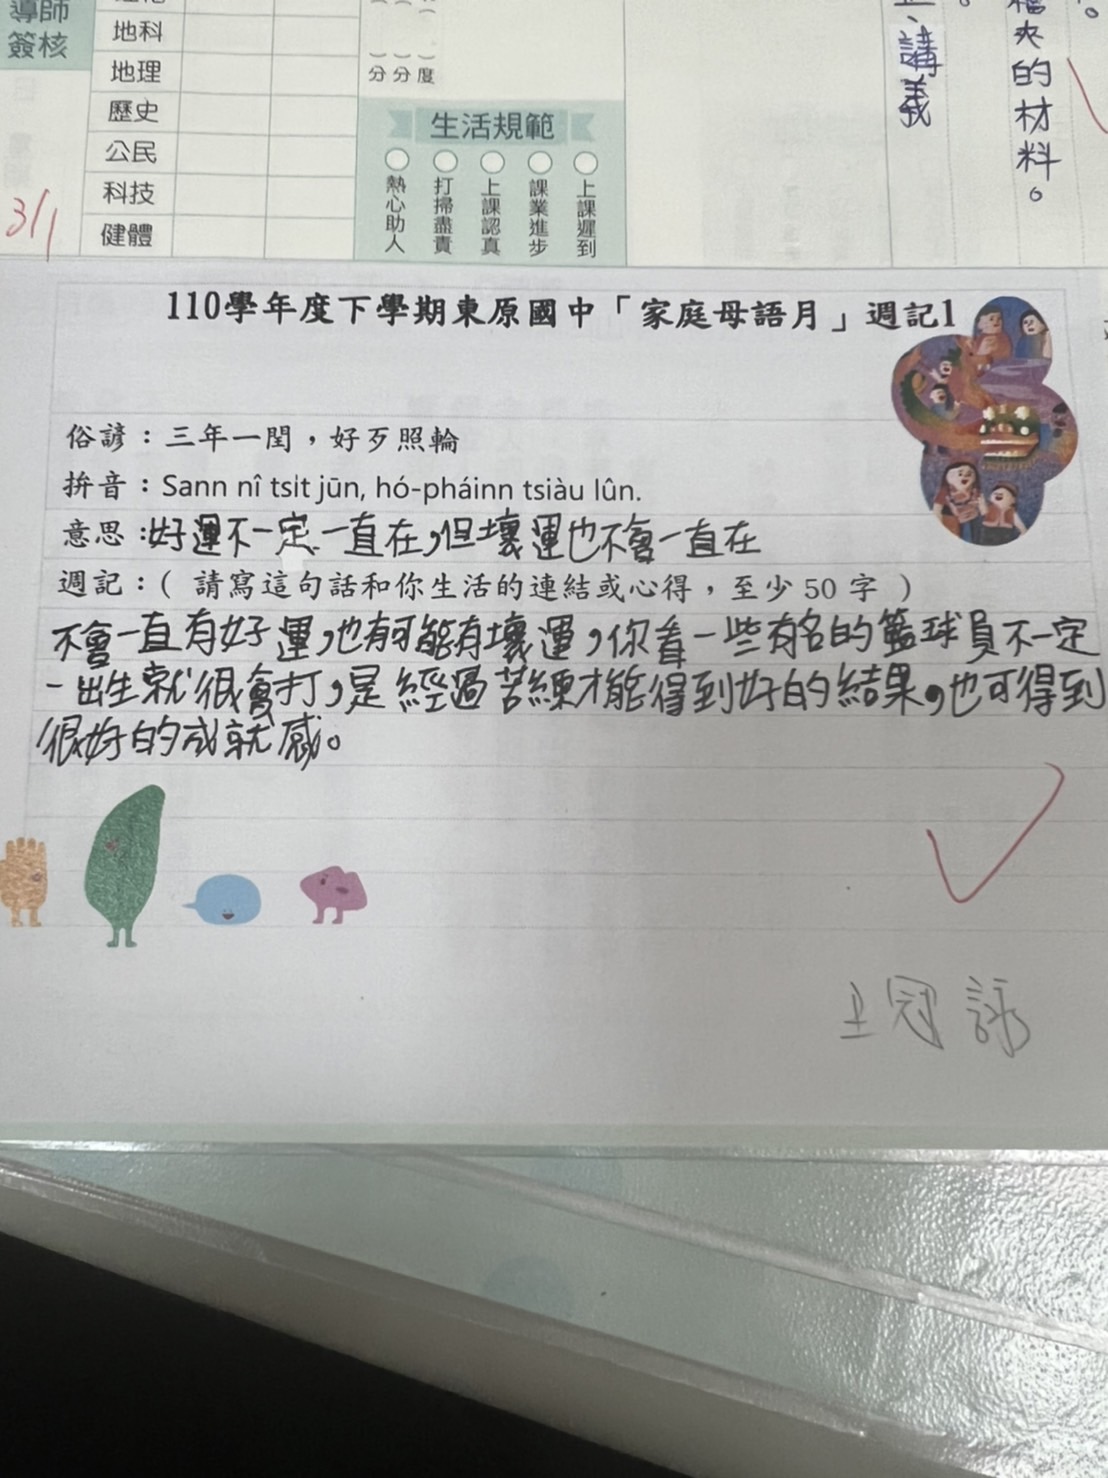 導師
簽核
地科
地理
歷史
公民
科技
健體
3/1
分 分 度
生活規範
熱心助人
打掃盡責
上課認真
課業進步
上課遲到
講義
夾的材料。
110學年度下學期東原國中「家庭母語月」週記1
俗諺：三年一閏，好歹照輪
拚音：Sann nî tsit jūn, hó-pháinn tsiàu lûn.
意思：好運不一定一直在，但壞運也不會一直在
週記：( 請寫這句話和你生活的連結或心得，至少 50 字 )
不會一直有好運，也有可能有壞運，你看一些有名的籃球員不一定
一出生就很會打，是經過苦練才能得到好的結果，也可得到
很好的成就感。
王冠詠